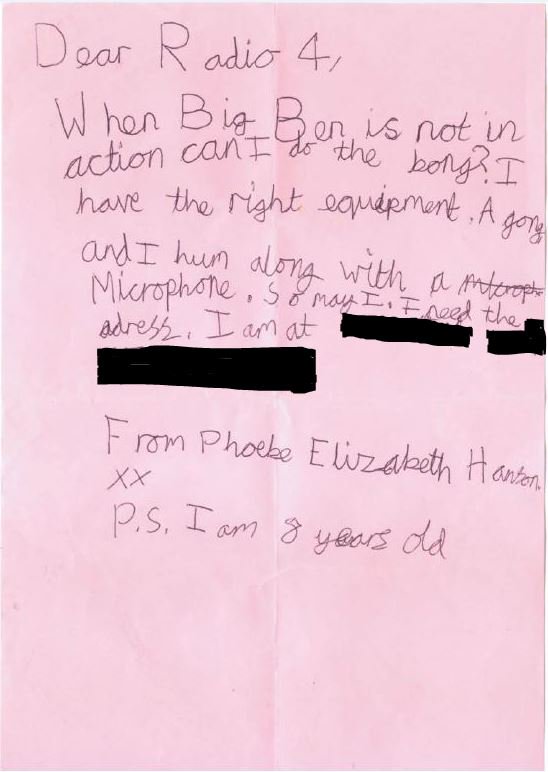 Dear Radio 4,
When Big Ben is not in
action can I do the bong? I
have the right equipment. A gong
and I hum along with a microph
Microphone. So may I. I need the
adress. I am at
From Phoebe Elizabeth Hanson.
xx
P.S. I am 8 years old